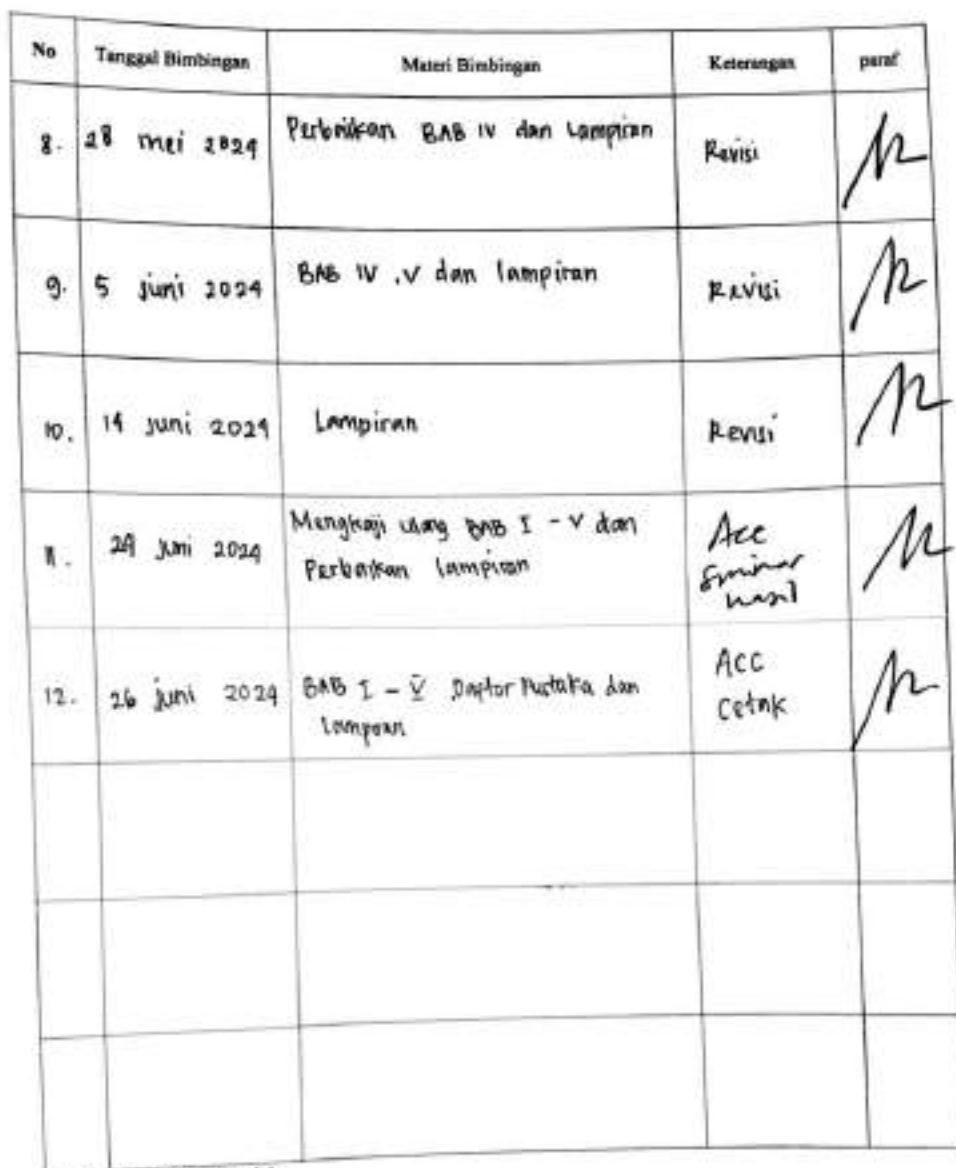 No Tanggal Bimbingan Materi Bimbingan Keterangan paraf
8. 28 mei 2024 Perbaikan BAB IV dan Lampiran Revisi
9. 5 juni 2024 BAB IV , V dan lampiran Revisi
10. 14 juni 2024 Lampiran Revisi
11. 24 juni 2024 Mengkaji ulang BAB I - V dan Acc
Perbaikan lampiran Seminar
hasil
12. 26 juni 2024 BAB I - V Daptor Pustaka dan ACC
Lampiran Cetak